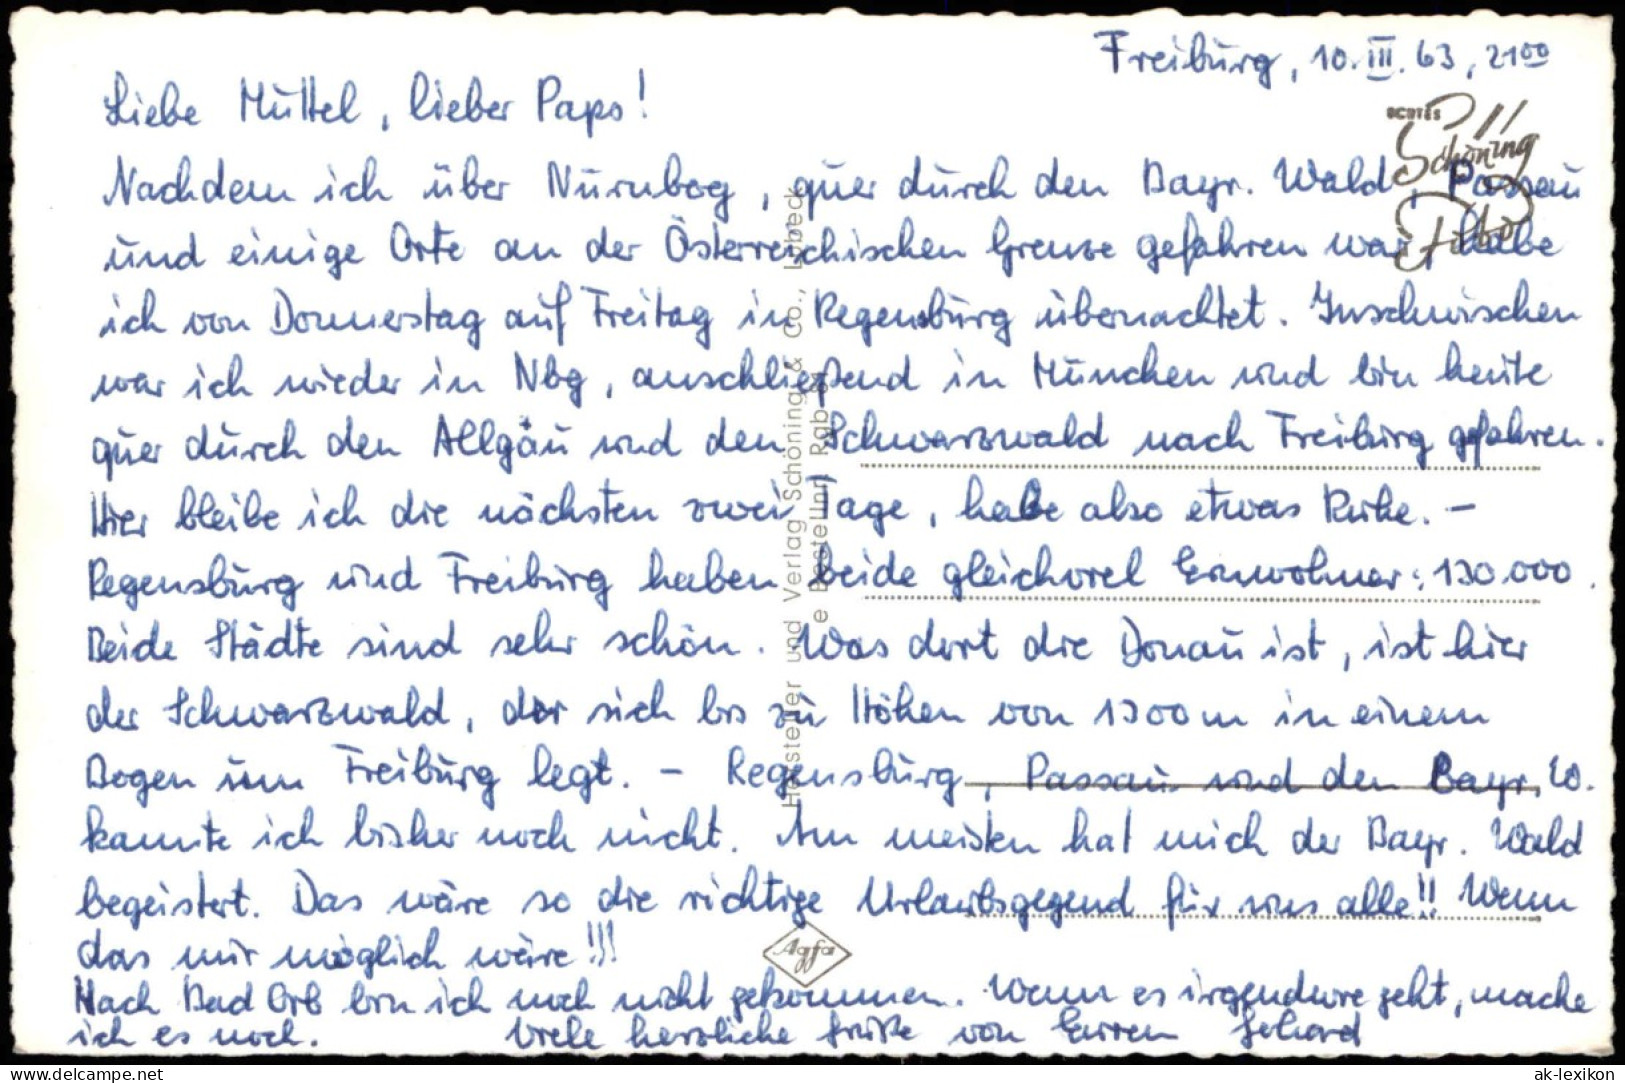 Freiburg, 10. III. 63, 21⁰⁰
Liebe Muttel, lieber Paps!
ECHTES
Schöning
Foto
Nachdem ich über Nürnberg, quer durch den Bayr. Wald, Passau
und einige Orte an der Österreichischen Grenze gefahren war, habe
ich von Donnerstag auf Freitag in Regensburg übernachtet. Inzwischen
war ich wieder in Nbg, anschließend in München und bin heute
quer durch den Allgäu und den Schwarzwald nach Freiburg gefahren.
Hier bleibe ich die nächsten zwei Tage, habe also etwas Ruhe. –
Regensburg und Freiburg haben beide gleichviel Einwohner: 130.000.
Beide Städte sind sehr schön. Was dort die Donau ist, ist hier
der Schwarzwald, der sich bis zu Höhen von 1300 m in einem
Bogen um Freiburg legt. – Regensburg, Passau und den Bayr. W.
kannte ich bisher noch nicht. Am meisten hat mich der Bayr. Wald
begeistert. Das wäre so die richtige Urlaubsgegend für uns alle!! Wenn
das nur möglich wäre!!!
Nach Bad Orb bin ich noch nicht gekommen. Wenn es irgendwie geht, mache
ich es noch. Viele herzliche Grüße von Eurem Gehard
Hersteller und Verlag Schöning & Co., Lübeck
Bestellnr. Rgb
Agfa
delcampe.net
ak-lexikon